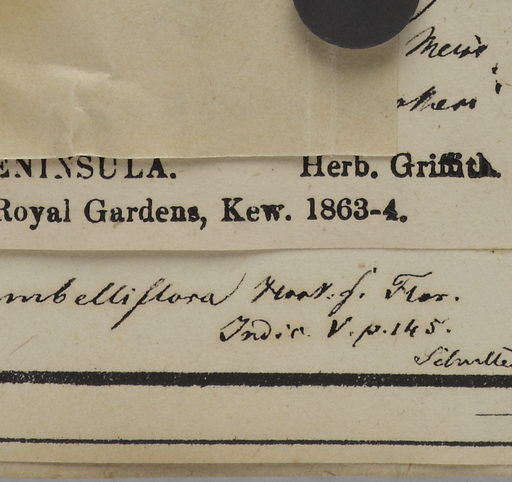 Meis
ENINSULA. Herb. Griffith.
Royal Gardens, Kew. 1863-4.
mbelliflora Hook. f. Flor.
Indic. V. p. 145.